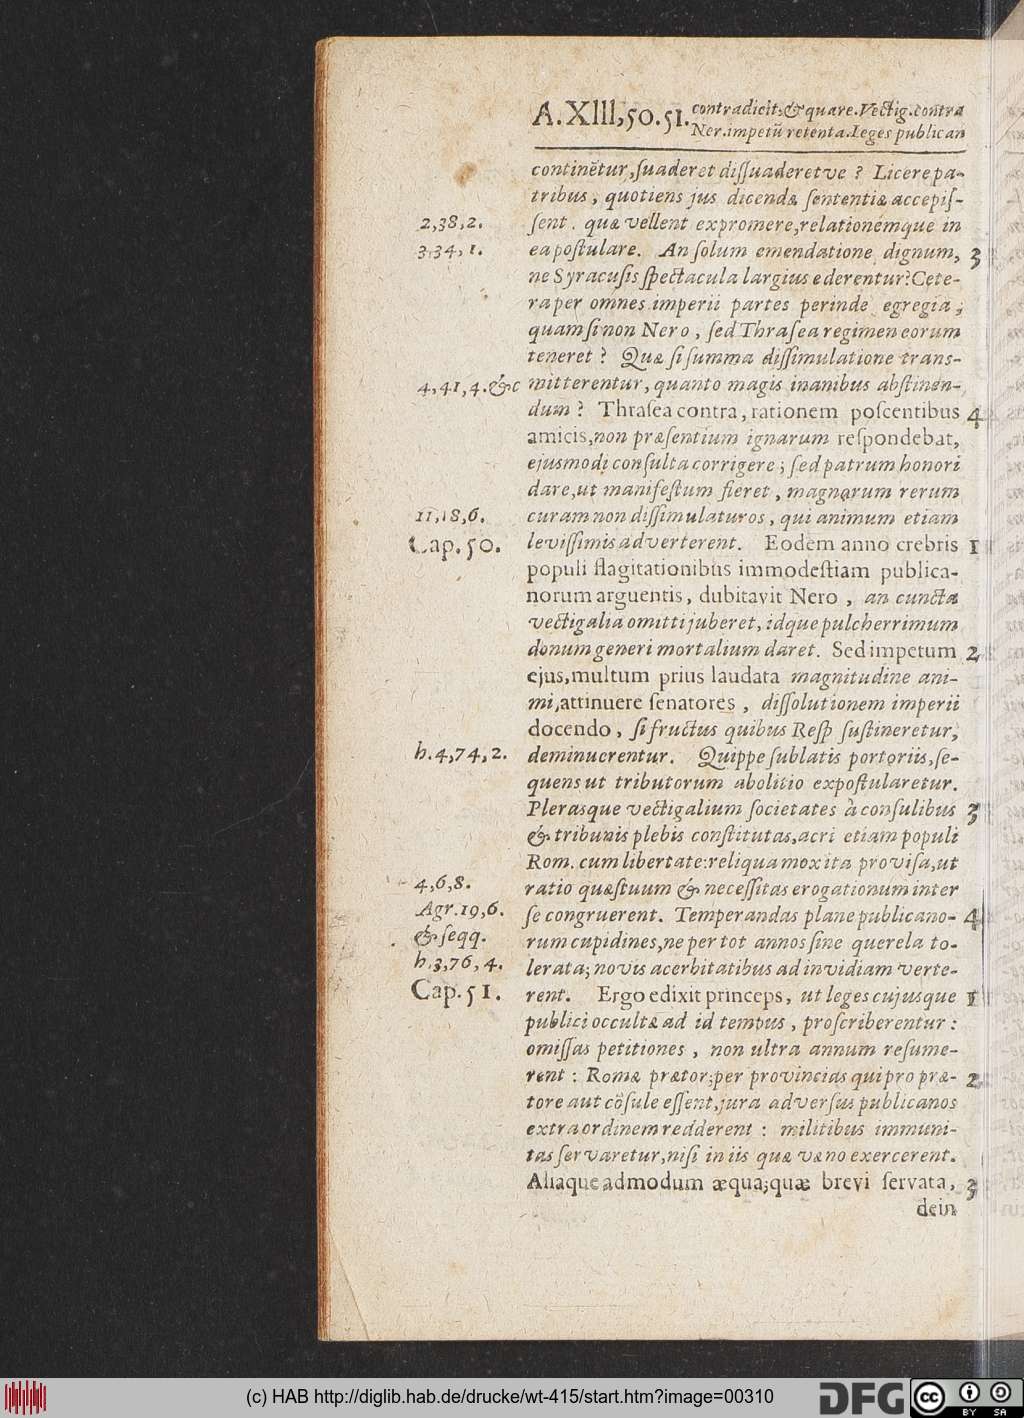 A. XIII, 50. 51. contradicit, & quare. Vectig. contra
Ner. impetũ retenta. Leges publican
continẽtur, ſuaderet diſſuaderetve ? Licere pa-
tribus, quotiens jus dicendæ ſententiæ accepiſ-
2, 38, 2. ſent. quæ vellent expromere, relationémque in
3, 34, 1. ea poſtulare. An ſolum emendatione dignum, 3
ne Syracuſis ſpectacula largius ederentur? Cete-
ra per omnes imperii partes perinde egregia,
quam ſi non Nero, ſed Thraſea regimen eorum
teneret ? Quæ ſi ſumma diſſimulatione trans-
4, 41, 4. &c mitterentur, quanto magis inanibus abſtinen-
dum ? Thraſea contra, rationem poſcentibus 4
amicis, non præſentium ignarum reſpondebat,
ejusmodi conſulta corrigere; ſed patrum honori
dare, ut manifeſtum fieret, magnarum rerum
11, 18, 6. curam non diſſimulaturos, qui animum etiam
Cap. 50. leviſſimis adverterent. Eodem anno crebris 1
populi flagitationibus immodeſtiam publica-
norum arguentis, dubitavit Nero, an cuncta
vectigalia omitti juberet, idque pulcherrimum
donum generi mortalium daret. Sed impetum 2
ejus, multum prius laudata magnitudine ani-
mi, attinuere ſenatores, diſſolutionem imperii
docendo, ſi fructus quibus Reſp ſuſtineretur,
h. 4, 74, 2. deminuerentur. Quippe ſublatis portoriis, ſe-
quens ut tributorum abolitio expoſtularetur.
Plerasque vectigalium ſocietates à conſulibus 3
& tribunis plebis conſtitutas, acri etiam populi
Rom. cum libertate: reliqua mox ita proviſa, ut
4, 6, 8. ratio quæſtuum & neceſſitas erogationum inter
Agr. 19, 6. ſe congruerent. Temperandas plane publicano- 4
& ſeqq. rum cupidines, ne per tot annos ſine querela to-
h. 3, 76, 4. lerata; novis acerbitatibus ad invidiam verte-
Cap. 51. rent. Ergo edixit princeps, ut leges cujusque 1
publici occultæ ad id tempus, proſcriberentur :
omiſſas petitiones, non ultra annum reſume-
rent : Romæ prætor; per provincias qui pro præ- 2
tore aut cõſule eſſent, jura adverſus publicanos
extra ordinem redderent : militibus immuni-
tas ſervaretur, niſi in iis quæ væno exercerent.
Aliaque admodum æqua; quæ brevi ſervata, 3
dein
(c) HAB http://diglib.hab.de/drucke/wt-415/start.htm?image=00310
DFG
cc BY SA